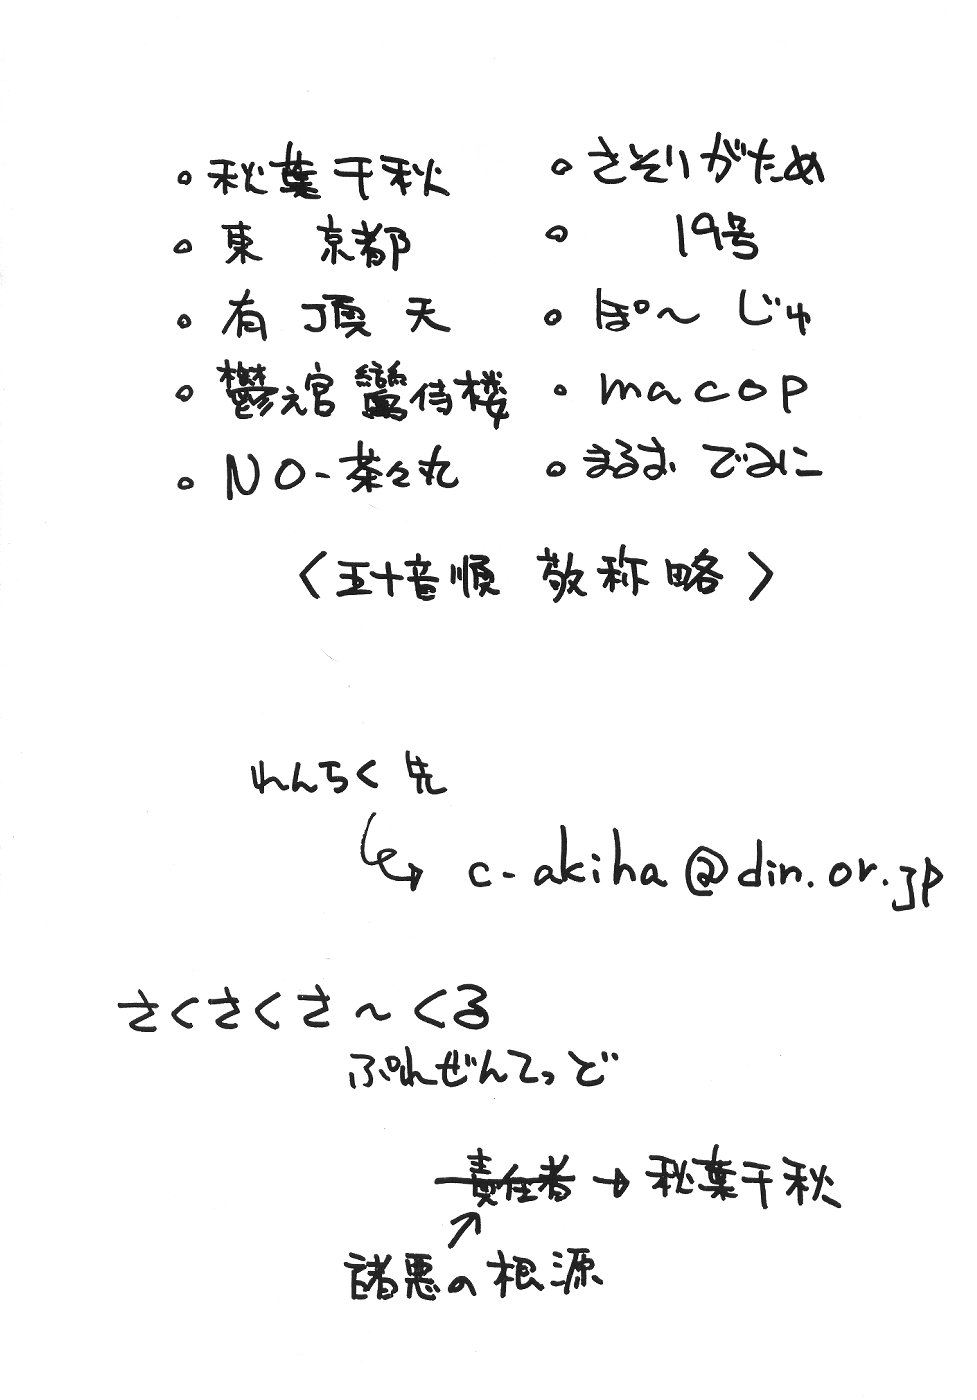 。秋葉千秋
。東 京都
。有 頂 天
。鬱え宮 鸞侍楼
。NO-茶々丸
。さそりがため
。19号
。ぽ～ じゅ
。macop
。まるお でみに
〈五十音順 敬称略〉
れんちく先
c-akiha@din.or.jp
さくさくさ～くる
ぷれぜんてっど
責任者→秋葉千秋
諸悪の根源